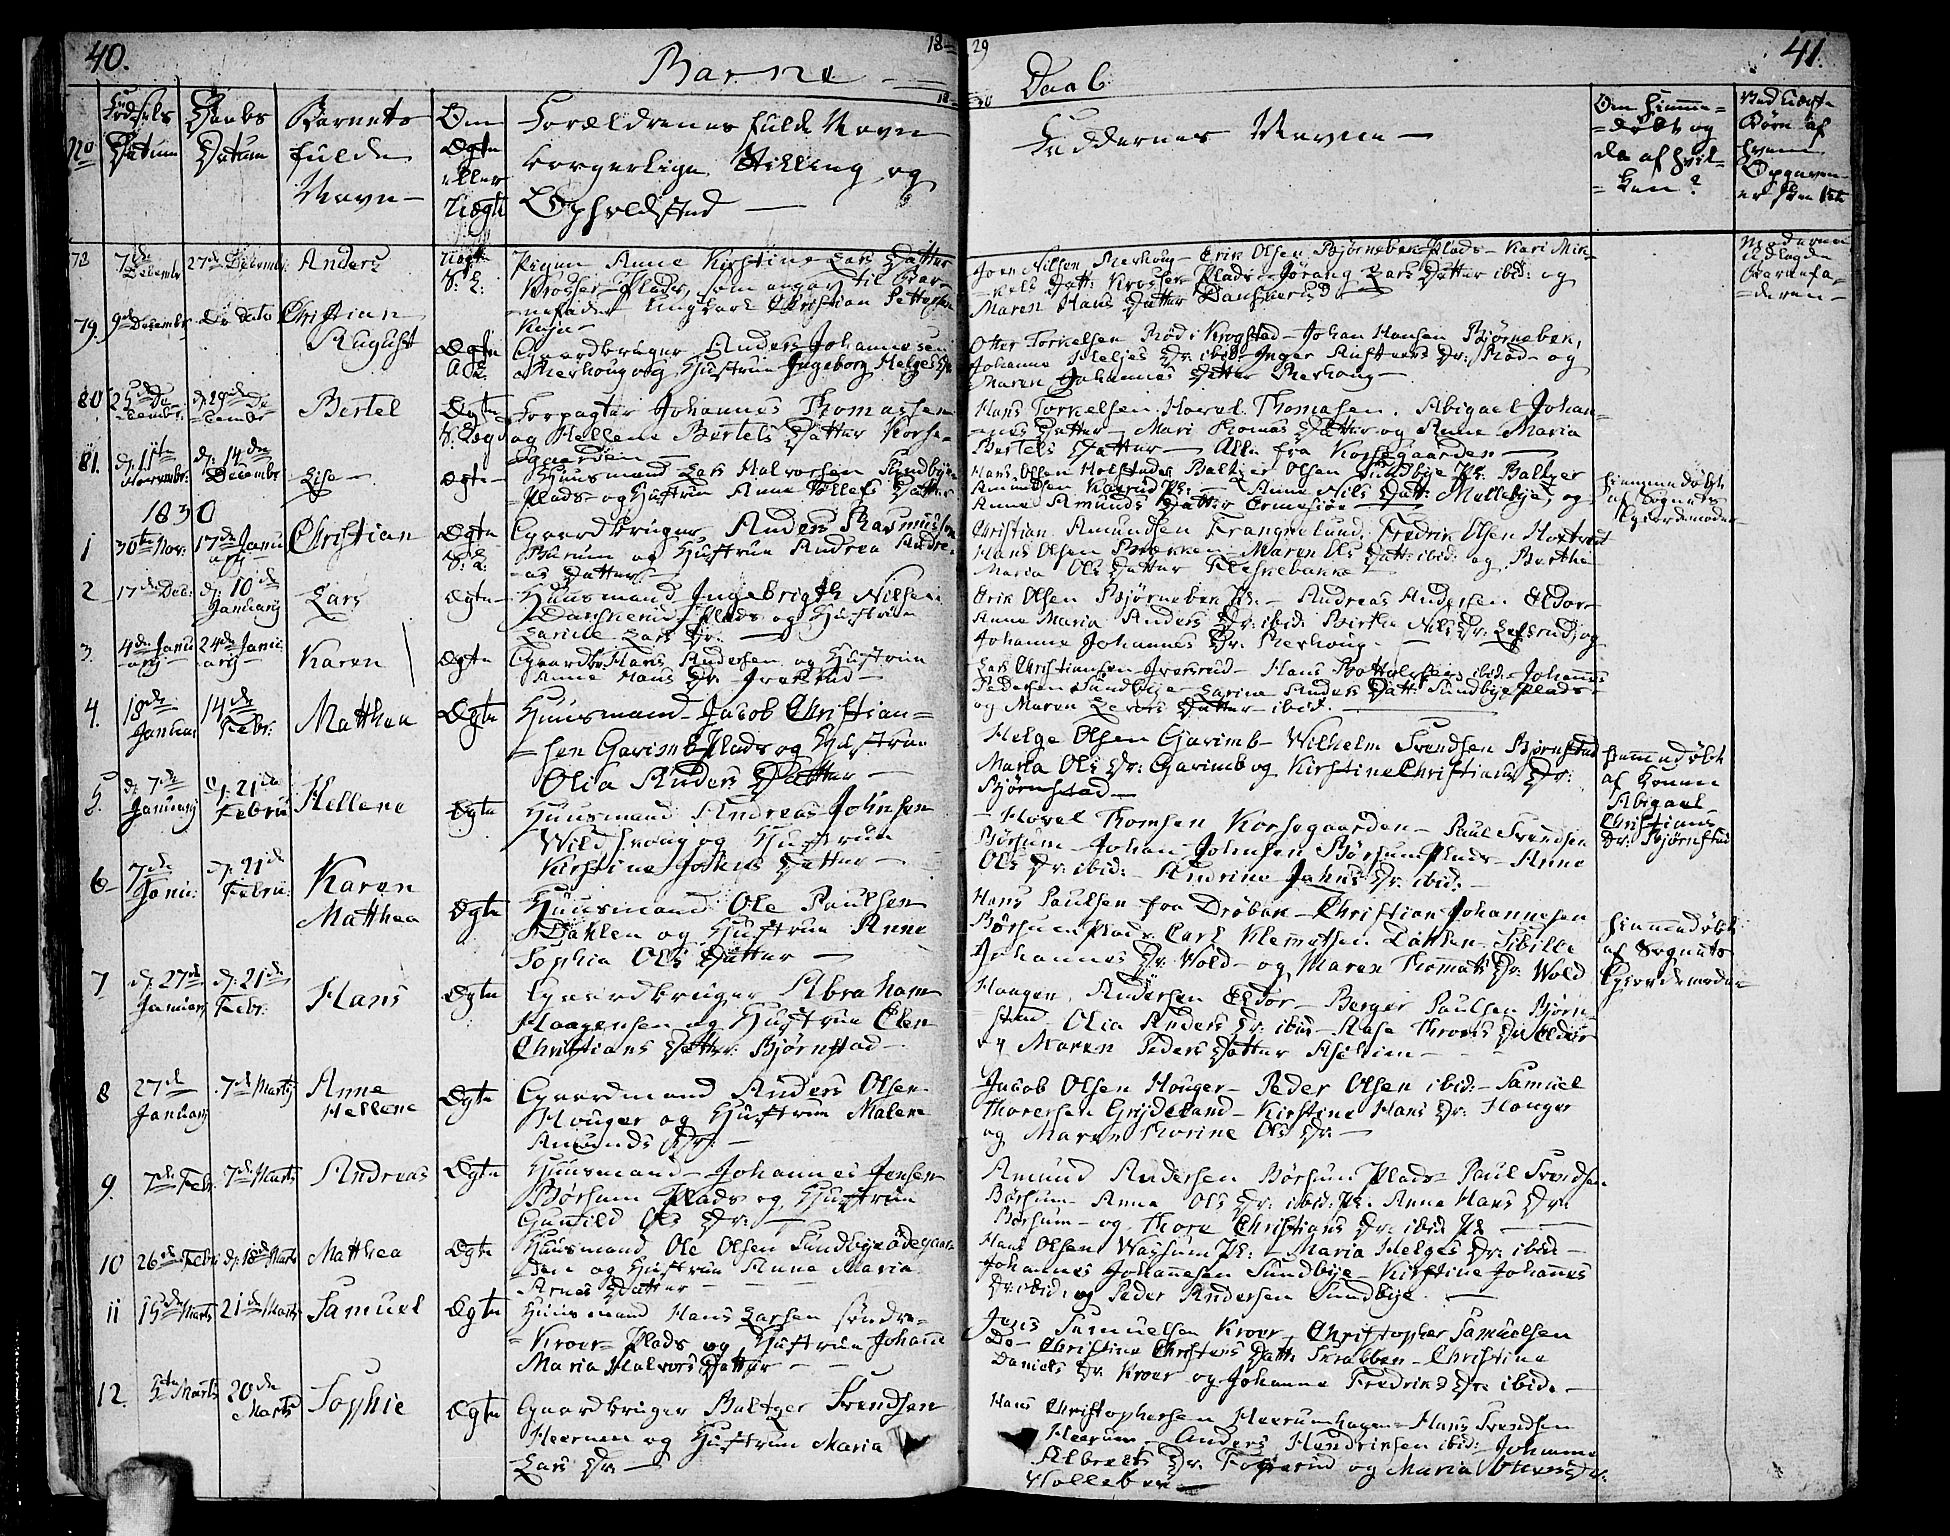 40.
Barne
18
29
Daab
41.
18
30
No
Fødsels Datum
Daabs Datum
Barnets fulde Navn
Om Ægte eller Uægte
Forældrenes fulde Navn borgerlige Stilling og Opholdsted
Faddernes Navne
Om hjemmedøbt og da af hvilken?
Ved Uægte Børn af hvem Opgaven er skeet
78
7de Decembr
27de Decembr:
Anders
Uægte
Pigen Anne Kirstine Lars Datter
Krosser Plads, som angav til Bar-
nefader Ungkarl Christian Pettersen
Joen Nilsen Skerhoug - Erik Olsen Bjørnebek Plads - Kari Mik-
kels Datt: Krosser Plads - Jørang Lars Datter ibid: og
Maren Hans Datter Danskerud
Moderen
udlagde
Barnefa-
deren
79.
9de Decembr
Do Dato
Christian
August
Ægte
Gaardbruger Anders Johannesen
Skerhoug og Hustrue Ingeborg Helges Dr
Otter Torkelsen Rød i Krogstad - Johan Hansen Bjørnebek,
Johanne Helges Dr. ibid: - Inger Dr: Rød - og
Maren Johannes Datter Skerhoug
80
25de De-
cembr:
d: 29de De-
cembr
Bertel
Ægte
Forpagter Johannes Thomassen
og Hellene Bertels Datter Korse-
gaarden
Hans Torkelsen. Hovel Thomasen. Abigael Johan-
nes Datter - Mari Thomas Datter og Anne Maria
Bertels Datter - Alle fra Korsegaarden
81.
d: 11te
Novembr:
d: 14de
Decembr
Lise
Ægte
Huusmand Lars Halvorsen Sundbye
Plads - og Hustrue Anne Tollefs Datter
Hans Olsen Holstad - Baltzer Olsen Sundbye Pl: Baltzer
Amundsen Pl: - Anne Nils Datt: Møllebye, og
Anne Amunds Datter
Hjemmedøbt
af Sognets
Gjordemoder
1830
1
30te Nov:
17de Janu
ary
Christian
Ægte
Gaardbruger Anders Rasmussen
og Hustrue Andrea Andre-
as Datter
Christian Amundsen Frangnelund. Fredrik Olsen Hoxtvedt
Hans Olsen - Maren Ols Datt: ibid: og Berthe
Maria Ols Datter
2
17de Dec:
d: 10de
January
Lars
Ægte
Huusmand Ingebrigth Nilsen
Danskerud Plads og Hustrue
Larine Lars Dr:
Erik Olsen Bjørnebek Pl: - Andreas Andersen Eldor
Anne Maria Anders Dr: ibid. Nils Dr: og
Johanne Johannes Dr: Skerhoug
3.
4de Janu
ary
24de Janu
ary
Karen
Ægte
Gaardbr: Hans Andersen og Hustrue
Anne Hans Dr.
Lars Christiansen - Hans ibid: - Johannes
Pedersen Sundbye - Larine Anders Datt: Sundbye plads -
og Maren Datter ibid.
4.
18de
Januar
14de
Febr:
Matthea
Ægte
Huusmand - Jacob Christian-
sen Garimb Plads og Hustrue
Olia Anders Datter
Helge Olsen Garimb - Wilhelm Svendsen Bjørnstad
Maria Ols Dr: Garimb og Kirstine Christians Dr:
Bjørnstad
Hjemmedøbt
af Konen
Abigael
Christians
Dr: Bjørnstad
5.
d: 7de
January
d: 21de
Febru
Hellene
Ægte
Huusmand Andreas Johnsen
Wildhoug og Hustrue
Kirstine Datter
Hovel Thomsen Korsegaarden - Paul Svendsen
Børsum - Johan Johnsen Børsum Plads - Anne
Ols Dr: ibid: - Andrine Jahns Dr: ibid:
6
7de
Janu:
d: 21de
Febru:
Karen
Matthea
Ægte
Huusmand Ole Paulsen
Dahlen og Hustrue Anne
Sophia Ols Datter
Hans Paulsen fra Drøbak - Christian Johannesen
Børsum Plads Carl Klemmetsen Dahlen - Sibille
Johannes Dr: Wold - og Maren Thomas Dr: Wold
Hjemmedøbt
af Sognets
Gjordemoder
7
d: 27de
January
d: 21de
Febr:
Hans
Ægte
Gaardbruger Abraham
Haagensen og Hustrue Elen
Christians Datter: Bjørnstad
Haagen Andersen Eldor - Berger Paulsen Bjørn-
stad Olia Anders Dr: ibid - Aase Dr: Eldor
og Maren Peders Datter
8
27de
January
7de Martz
Anne
Hellene
Ægte
Gaardmand Anders Olsen
Houger og Hustrue Malene
Amunds Dr:
Jacob Olsen Houger - Peder Olsen ibid: - Samuel
Thoresen Grydeland - Kirstine Hans Dr: Houger
og Maren Thorine Ols Dr:
9.
7de Febr
7de Marts
Andreas
Ægte
Huusmand - Johannes Jensen
Børsum Plads og Hustrue
Gunild Ols Dr:
Amund Andersen Børsum Plads - Paul Svendsen
Børsum - Anne Ols Dr: ibid: Pl. Anne Hans Dr:
Børsum - og Thore Christians Dr: ibid Pl
10
26de Febr
d: 18de Marts
Matthea
Ægte
Huusmand Ole Olsen Sundbyeødegaar-
den og Hustrue Anne Maria
Arnes Datter
Hans Olsen Pl: - Maria Helges Dr: ibid -
Johannes Johannesen Sundbye - Kirstine Johannes
Dr: ibid: og Peder Andersen Sundbye
11
15de Marts
21de Marts
Samuel
Ægte
Huusmand Hans Larsen søndre-
Kroer- Plads og Hustrue Johanne
Maria Halvors Datter
Jens Samuelsen Kroer, Christopher Samuelsen
Christine Christens Datt: Skrabben - Christine
Daniels Dr. Kroer og Johanne Fredriks Dr: ibid.
12.
5te Marts
20de
Marts
Sophie
Ægte
Gaardbruger Baltzer Svendsen
Heerum og Hustrue Maria
Lars Dr:
Hans Christophersen Heerumhagen - Hans Svendsen
Heerum - Anders Hendriksen ibid: - Johanne
Albrets Dr: og Maria
Holleberg